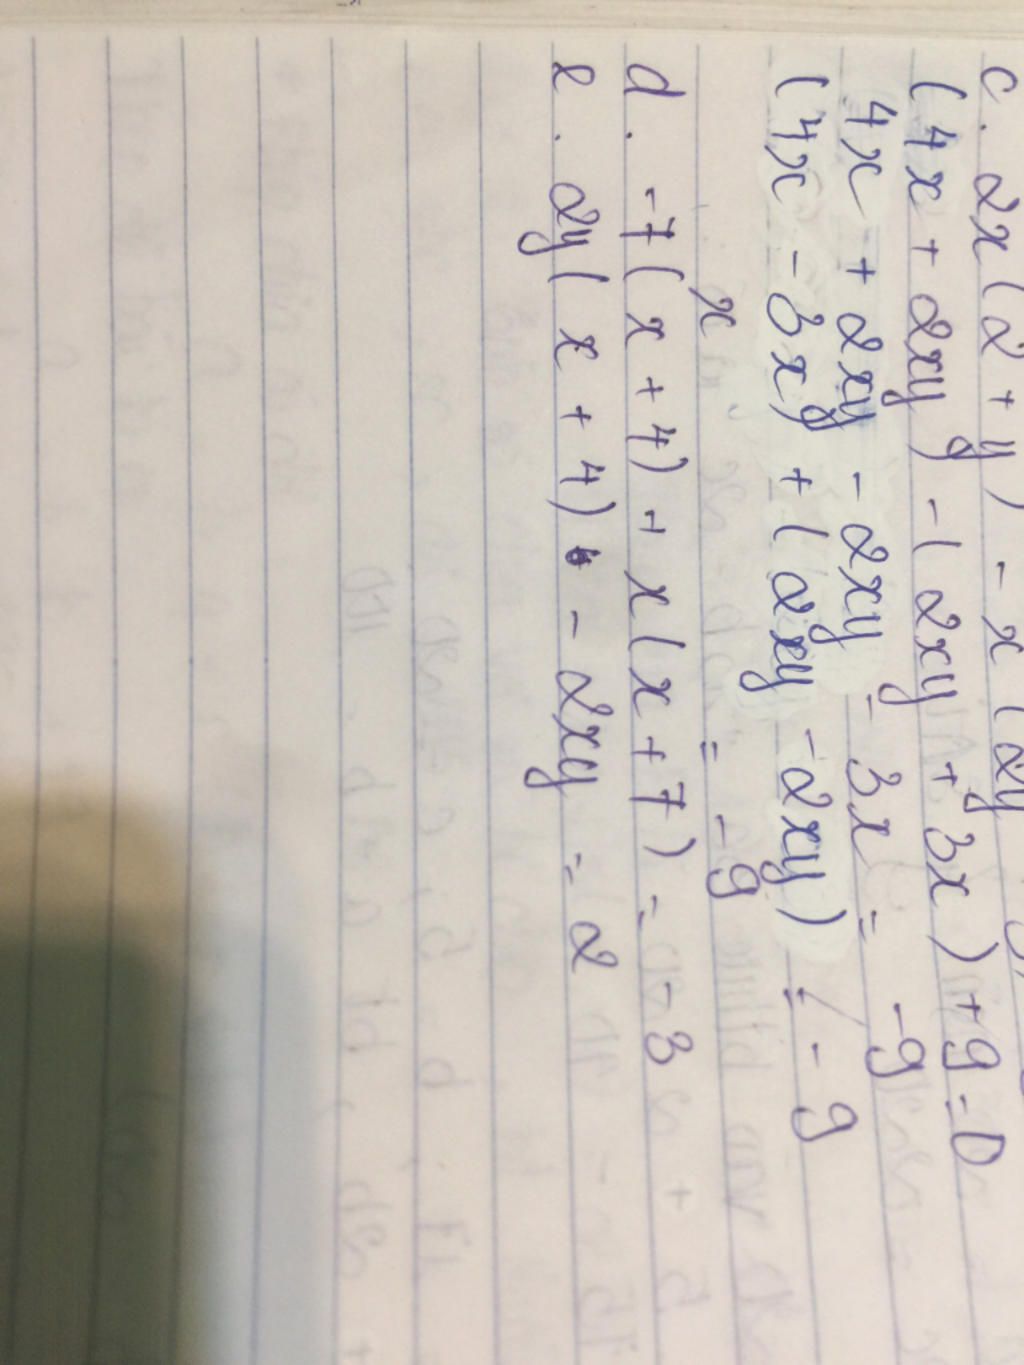 c. 2x(2+y) - x(2y
(4x + 2xy) - (2xy + 3x) + 9 = 0
4x + 2xy - 2xy - 3x = -9
(4x - 3x) + (2xy - 2xy) = -9
x = -9
d. -7(x+4) + x(x+7) = -3
e. 2y(x+4) - 2xy = 2